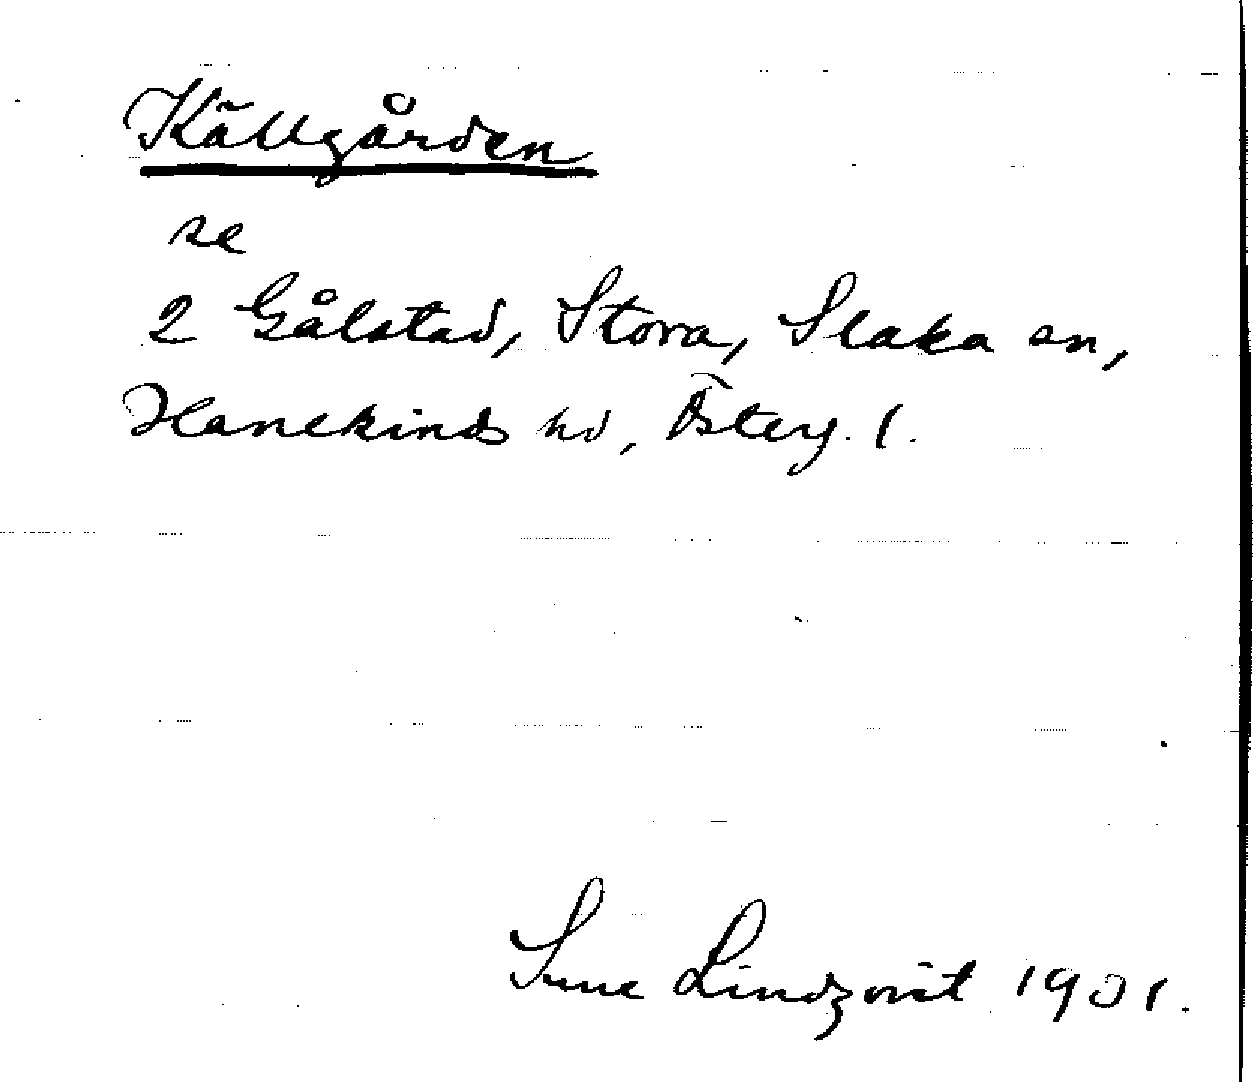 Källgården
se
2 Gålstad, Stora, Slaka sn,
Hanekinds hd, Österg. l.
Sune Lindqvist 1901.